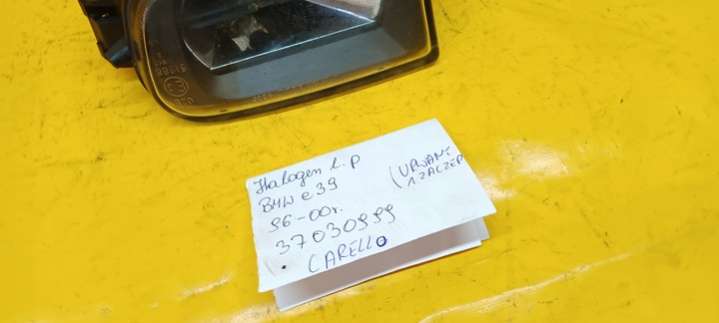 Halogen L.P
BMW e39
96-00r.
37030999
CARELLO
(URWANY
1 ZACZEP